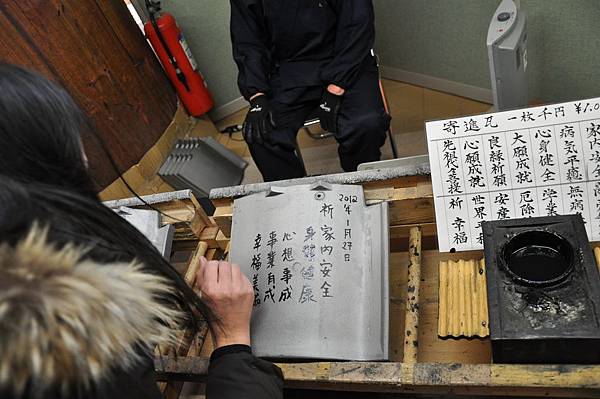 2012年1月27日
祈 家內安全
身體健康
心想事成
事業有成
幸福美滿
寄進瓦 一枚千円 ¥1.0
家内安全
病気平癒 無病
心身健全 学業
大願成就 厄除
良縁祈願 安産
心願成就 世界平
先祖代々菩提祈 幸福